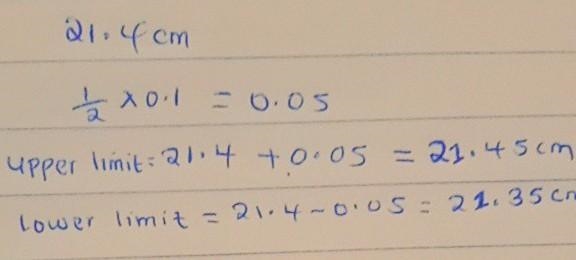 21.4 cm
1/2 × 0.1 = 0.05
upper limit: 21.4 + 0.05 = 21.45 cm
Lower limit = 21.4 - 0.05 = 21.35 cm